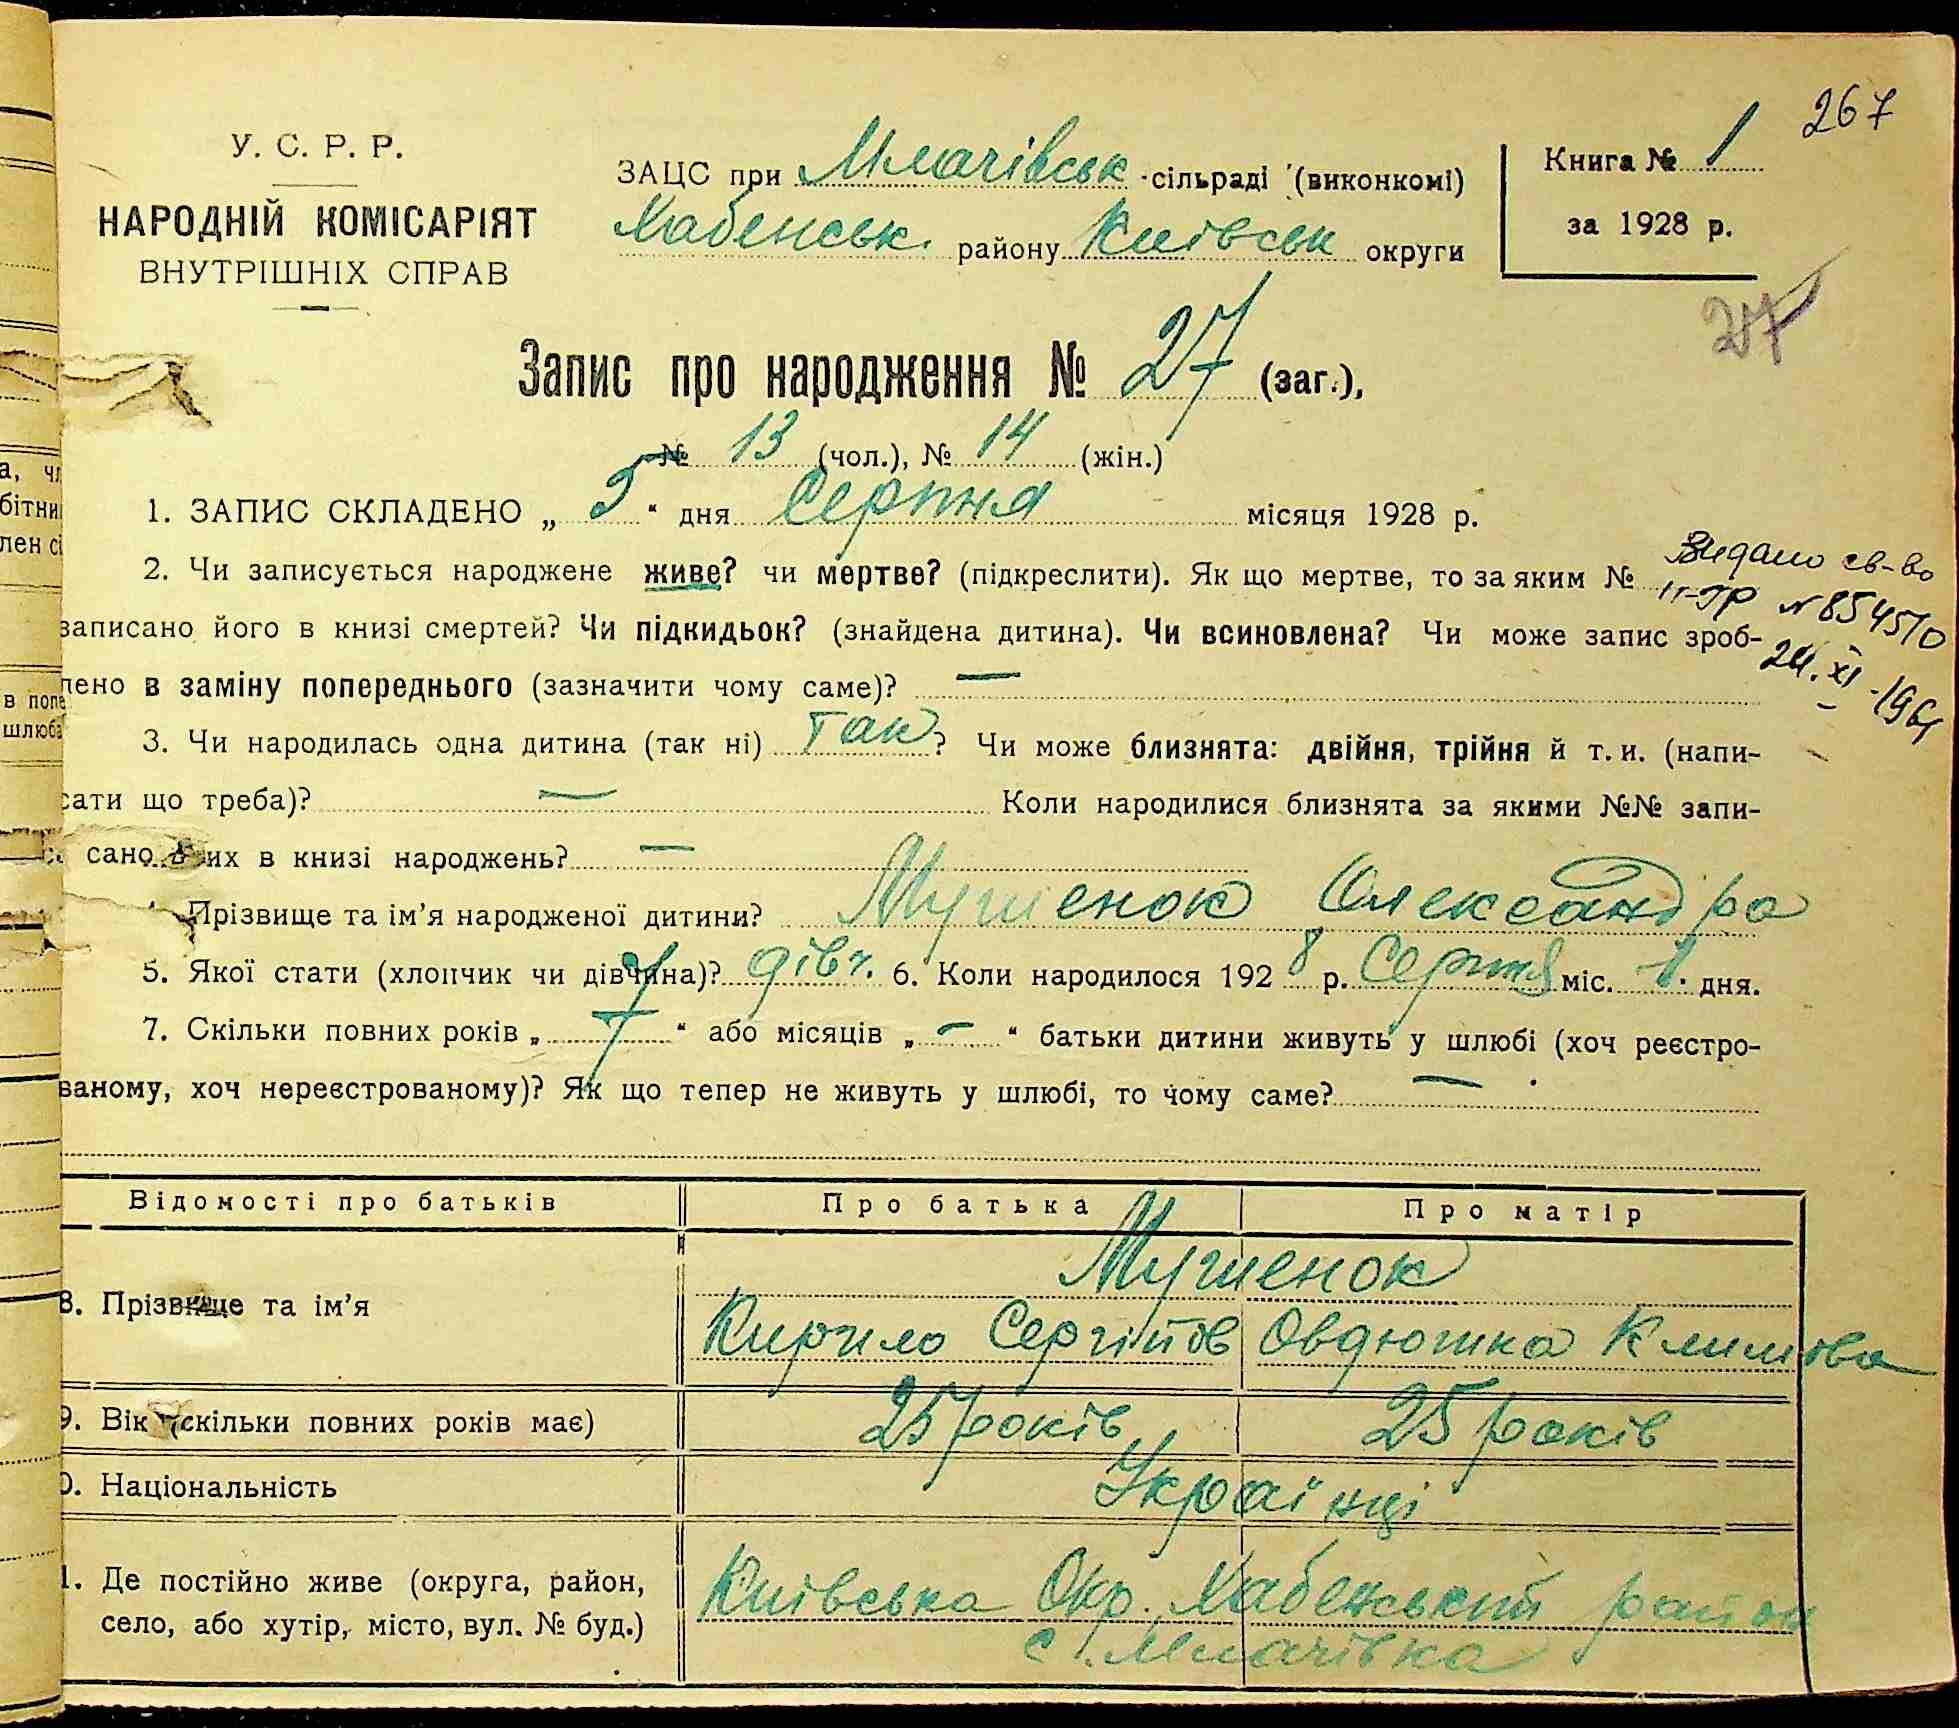 267
У. С. Р. Р.
НАРОДНІЙ КОМІСАРІЯТ
ВНУТРІШНІХ СПРАВ
ЗАЦС при Млачівськ сільраді (виконкомі)
Хабенськ. району Київськ округи
Книга № 1
за 1928 р.
27
Запис про народження № 27 (заг.),
№ 13 (чол.), № 14 (жін.)
1. ЗАПИС СКЛАДЕНО „ 5 “ дня Серпня місяця 1928 р.
2. Чи записується народжене живе? чи мертве? (підкреслити). Як що мертве, то за яким №
Видано св-во
II-ЯР № 854510
24.XI-1961
записано його в книзі смертей? Чи підкидьок? (знайдена дитина). Чи всиновлена? Чи може запис зроб-
лено в заміну попереднього (зазначити чому саме)? —
3. Чи народилась одна дитина (так ні) так? Чи може близнята: двійня, трійня й т. и. (напи-
сати що треба)? — Коли народилися близнята за якими №№ запи-
сано їх в книзі народжень? —
Прізвище та ім’я народженої дитини? Мушенок Олександра
5. Якої стати (хлопчик чи дівчина)? дівч. 6. Коли народилося 1928 р. Серпня міс. 1 дня.
7. Скільки повних років „ 7 “ або місяців „ — “ батьки дитини живуть у шлюбі (хоч реєстро-
ваному, хоч нереєстрованому)? Як що тепер не живуть у шлюбі, то чому саме? —
Відомості про батьків Про батька Про матір
8. Прізвище та ім’я Мушенок
Кирило Сергіїв Овдюшка Климова
9. Вік (скільки повних років має) 25 років 25 років
0. Національність Українці
1. Де постійно живе (округа, район, Київська Окр. Хабенський район
село, або хутір, місто, вул. № буд.) с. Млачівка